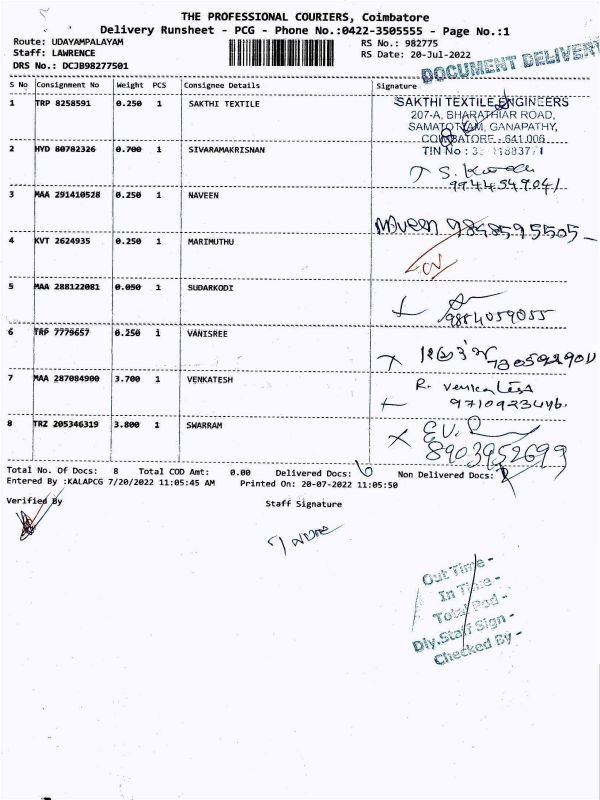 THE PROFESSIONAL COURIERS, Coimbatore
Delivery Runsheet - PCG - Phone No.:0422-3505555 - Page No.:1
Route: UDAYAMPALAYAM RS No.: 982775
Staff: LAWRENCE RS Date: 20-Jul-2022
DRS No.: DCJB98277501
DOCUMENT DELIVERY
S No Consignment No Weight PCS Consignee Details Signature
1 TRP 8258591 0.250 1 SAKTHI TEXTILE
SAKTHI TEXTILE ENGINEERS
207-A, BHARATHIAR ROAD,
SAMATOTTAM, GANAPATHY,
COIMBATORE - 641 006
TIN No :
2 HYD 80782326 0.700 1 SIVARAMAKRISNAN
3 MAA 291410528 0.250 1 NAVEEN
Naveen 9848595505
4 KVT 2624935 0.250 1 MARIMUTHU
5 MAA 288122081 0.050 1 SUDARKODI
9884059055
6 TRP 7779657 0.250 1 VANISREE
7 MAA 287084900 3.700 1 VENKATESH
R. Venkatesh
8 TRZ 205346319 3.800 1 SWARRAM
8903952699
Total No. Of Docs: 8 Total COD Amt: 0.00 Delivered Docs: Non Delivered Docs:
Entered By :KALAPCG 7/20/2022 11:05:45 AM Printed On: 20-07-2022 11:05:50
Verified By Staff Signature
Out Time -
In Time -
Total Pod -
Dly.Staff Sign -
Checked By -